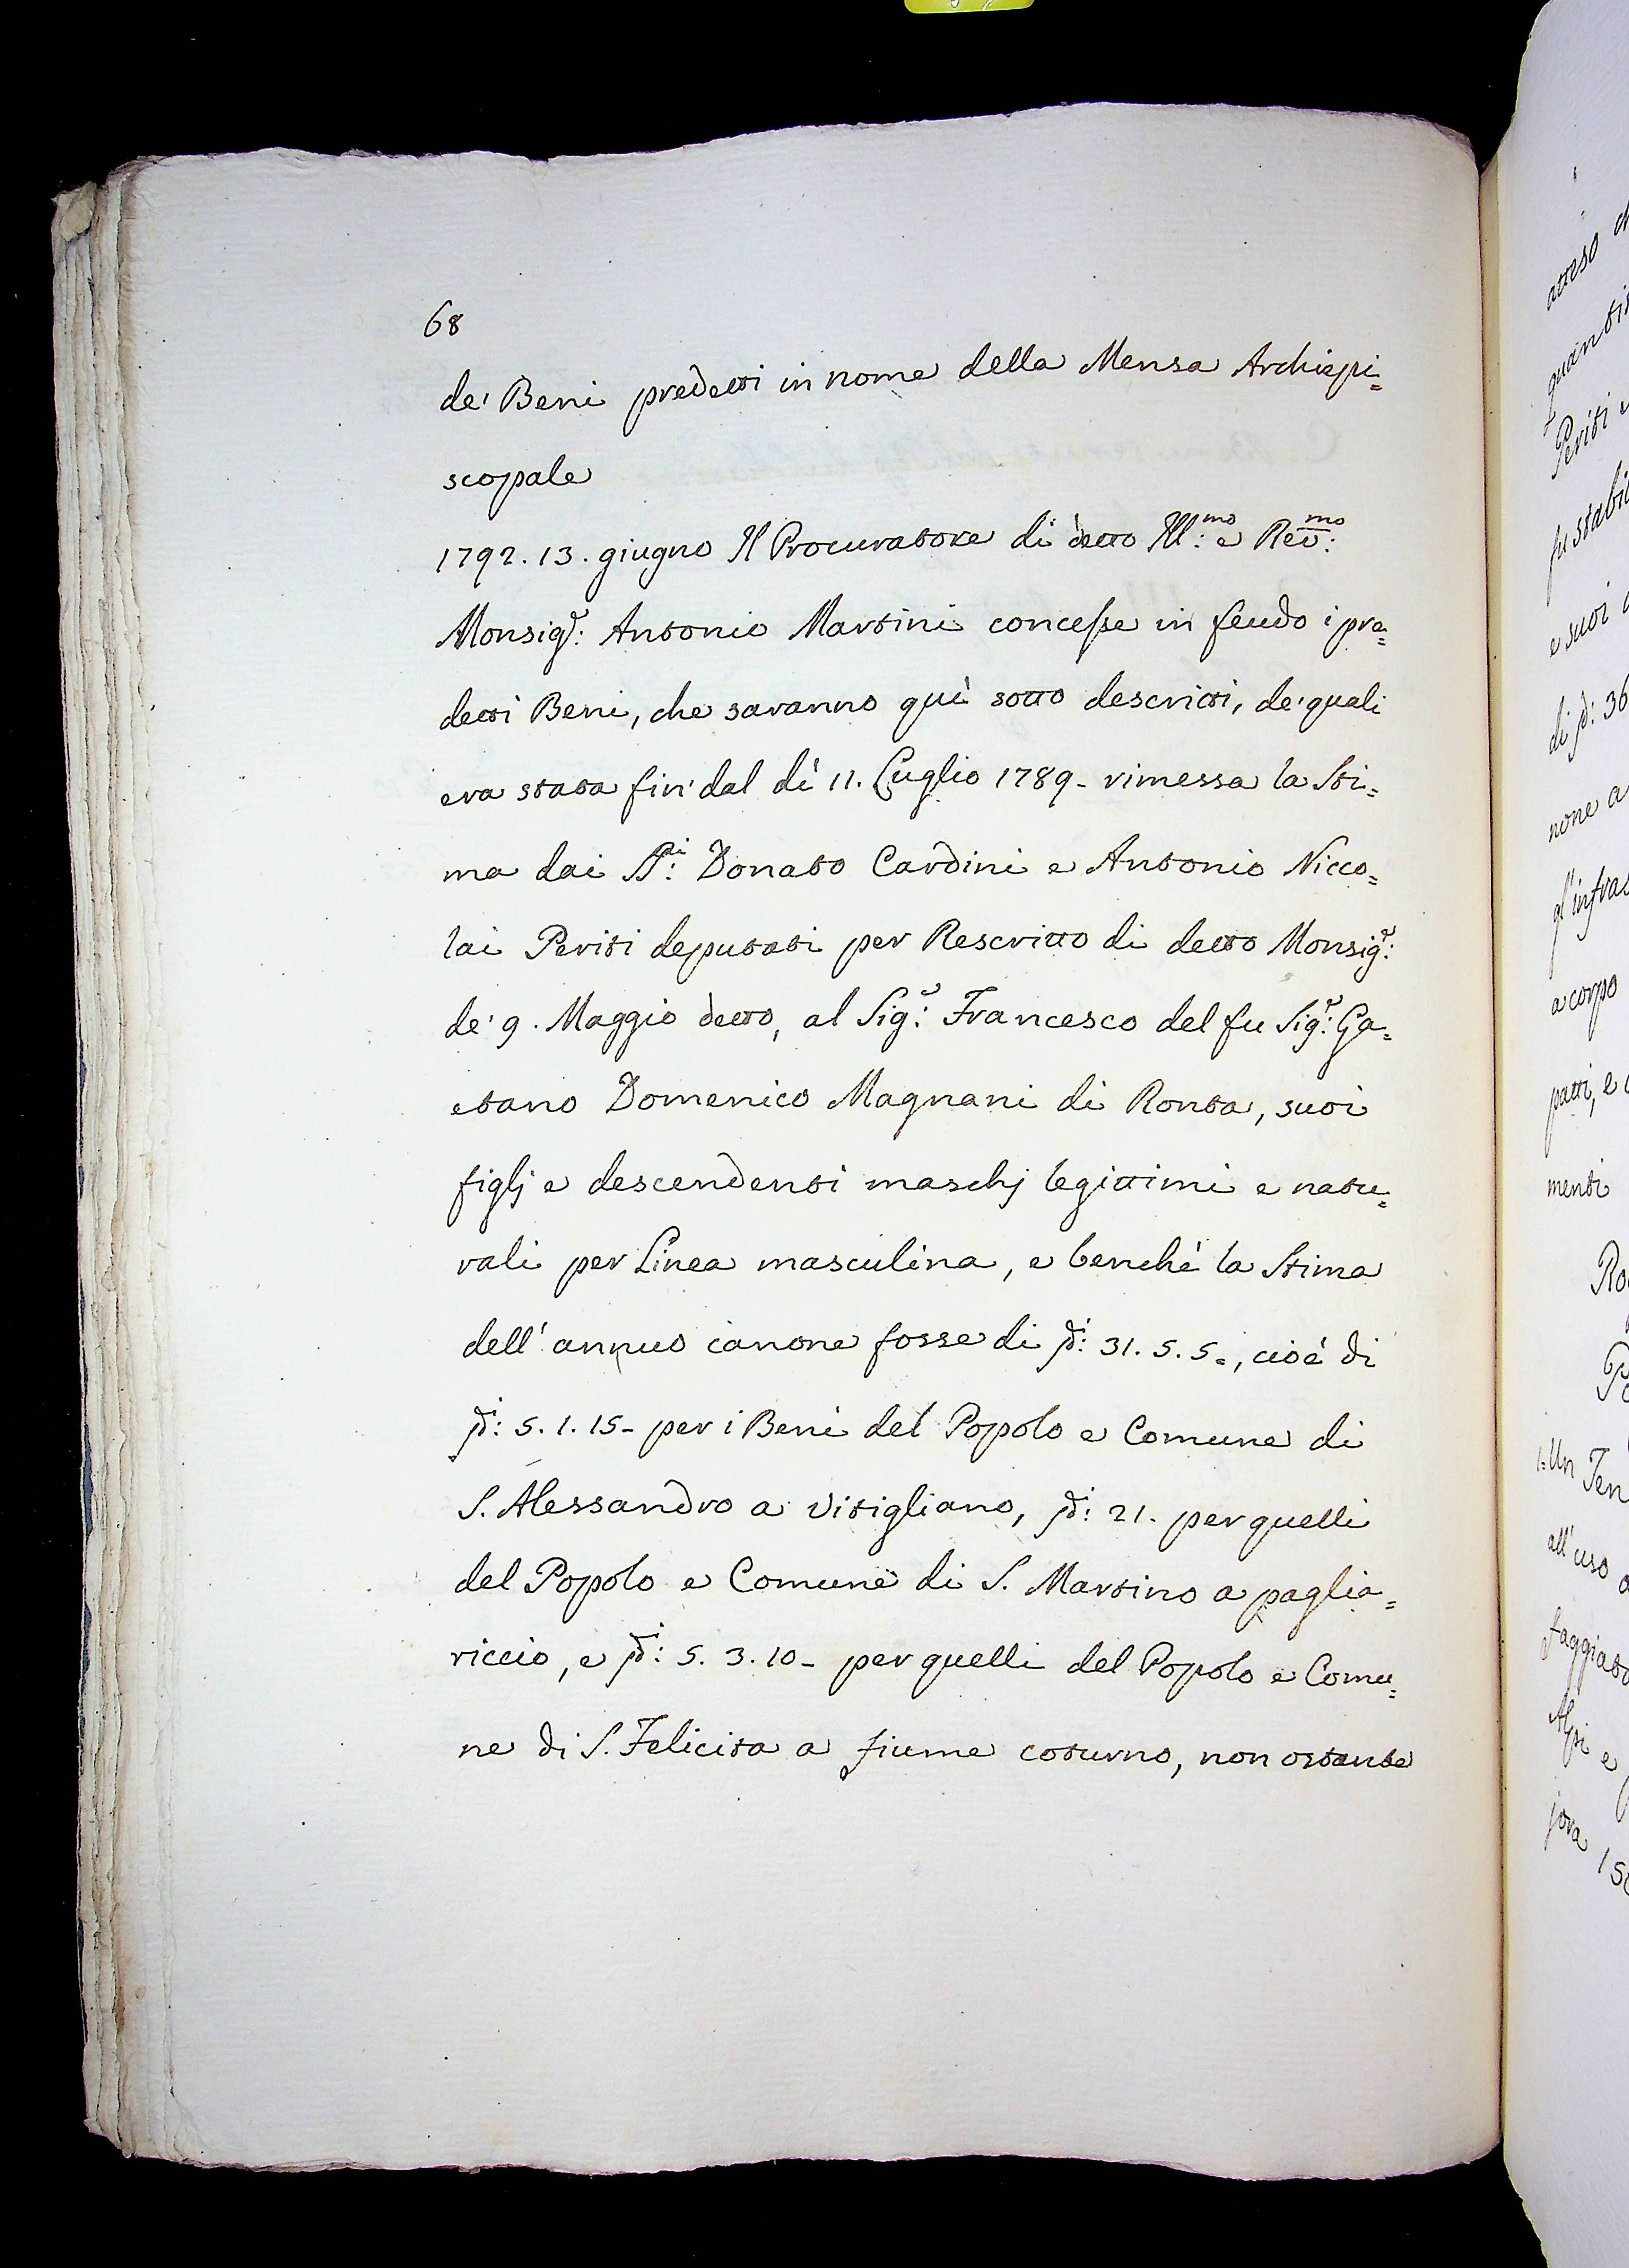 68
de' Beni predetti in nome della Mensa Archiepi=
scopale
1792. 13. giugno Il Procuratore di detto Ill:mo e Rev:mo
Monsigr: Antonio Martini concesse in feudo i pre=
detti Beni, che saranno quì sotto descritti, de' quali
era stata fin' dal dì 11. Luglio 1789 - rimessa la Sti=
ma dai SS:ri Donato Cardini e Antonio Nicco=
lai Periti deputati per Rescritto di detto Monsigr:
de' 9. Maggio detto, al Sigr: Francesco del fu Sigr: Ga=
etano Domenico Magnani di Ronta, suoi
figlj e descendenti maschj legittimi e natu=
rali per Linea masculina, e benchè la Stima
dell' annuo canone fosse di di: 31. 5. 5=, cioè di
di: 5. 1. 15 - per i Beni del Popolo e Comune di
S. Alessandro a Vitigliano, di: 21. per quelli
del Popolo e Comune di S. Martino a paglia=
riccio, e di: 5. 3. 10 - per quelli del Popolo e Comu=
ne di S. Felicita a fiume coturno, non ostante
atteso
Periti
fu stabi
e suoi
none a
a corpo
patti, e
menti
all' uso